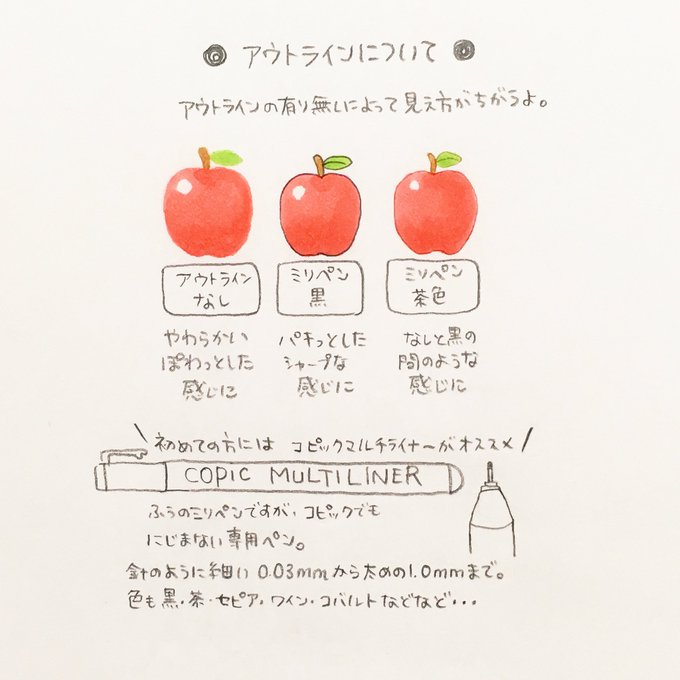 アウトラインについて
アウトラインの有り無しによって見え方がちがうよ。
アウトライン
なし
ミリペン
黒
ミリペン
茶色
やわらかい
ぽわっとした
感じに
パキっとした
シャープな
感じに
なしと黒の
間のような
感じに
初めての方には コピックマルチライナーがオススメ
COPIC MULTILINER
ふつうのミリペンですが、コピックでも
にじまない専用ペン。
針のように細い 0.03mmから太めの1.0mmまで。
色も黒・茶・セピア・ワイン・コバルトなどなど・・・